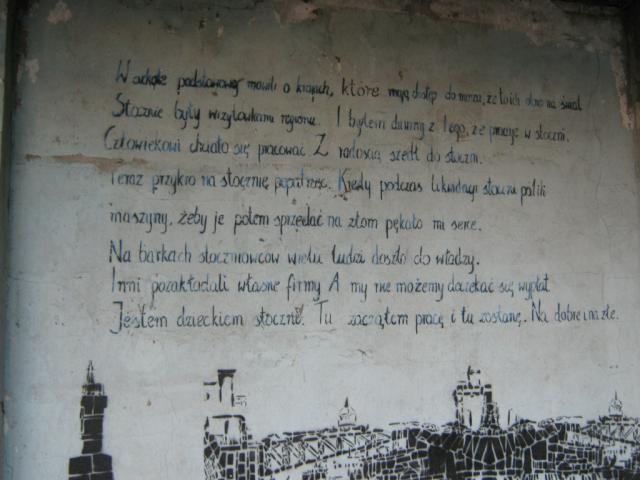 W szkole podstawowej mówili o krajach, które mają dostęp do morza, że to ich okno na świat
Stocznie były wizytówkami regionu. I byłem dumny z tego, że pracuję w stoczni.
Człowiekowi chciało się pracować. Z radością szedł do stoczni.
Teraz przykro na stocznię popatrzeć. Kiedy podczas likwidacji stoczni palili
maszyny, żeby je potem sprzedać na złom pękało mi serce.
Na barkach stoczniowców wielu ludzi doszło do władzy.
Inni pozakładali własne firmy A my nie możemy doczekać się wypłat
Jestem dzieckiem stoczni. Tu zacząłem pracę i tu zostanę. Na dobre i na złe.